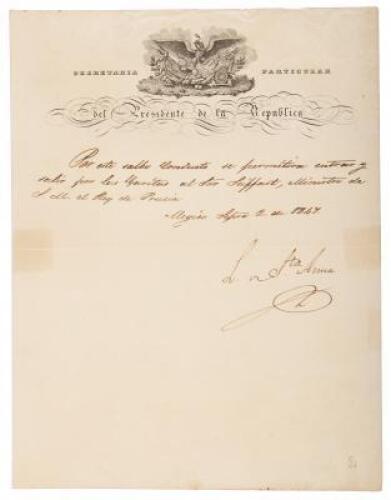 SECRETARIA PARTICULAR
del Presidente de la Republica
Por este salvo conducto se permitirá entrar y
salir por las Garitas al Sor Seiffart, Ministro de
S. M. el Rey de Prusia
Mexico Agto 2 de 1847.
L. de Sta Anna